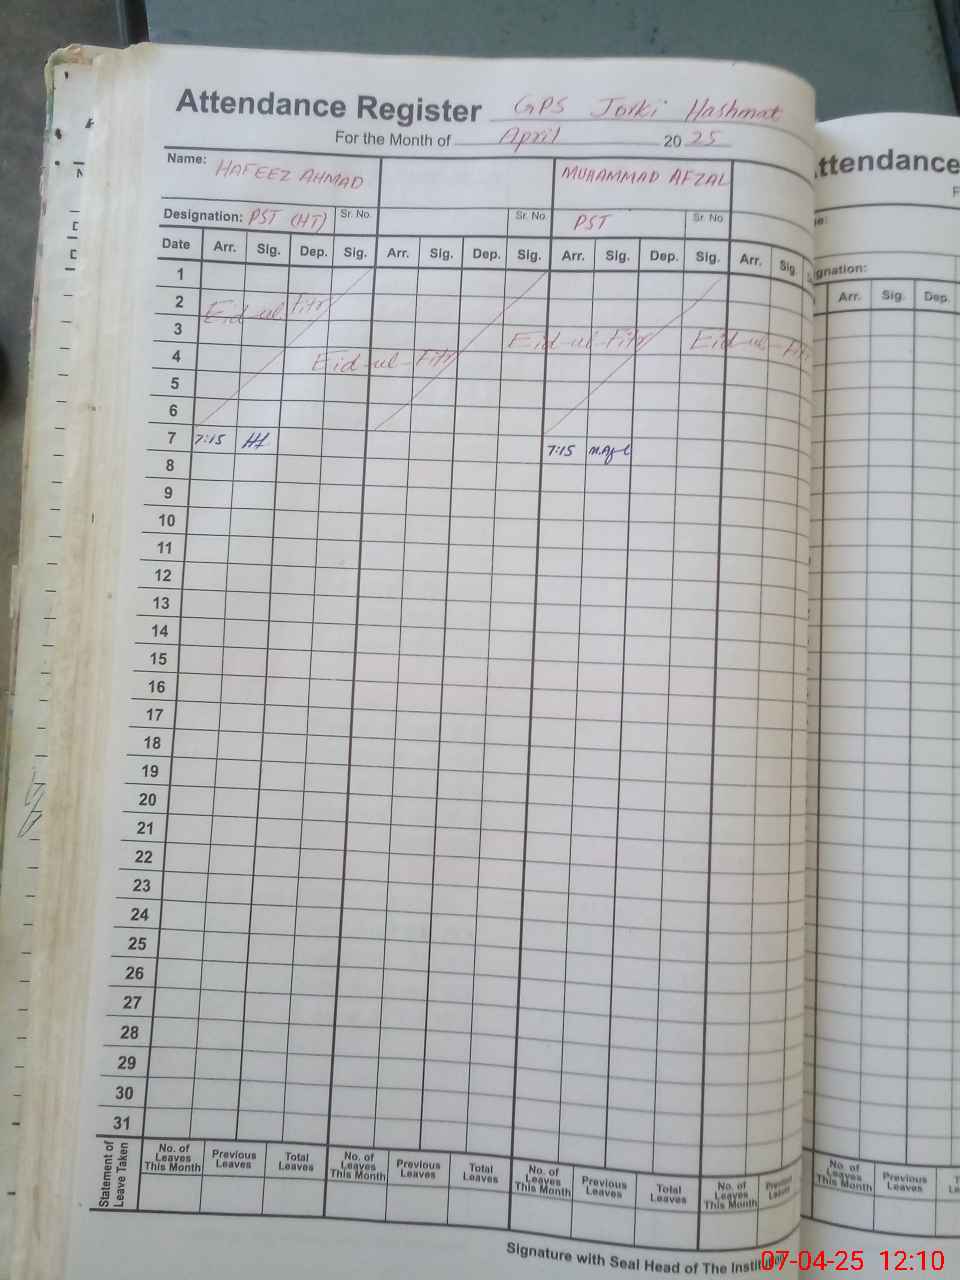 Attendance Register GPS Jorki Hashmat
For the Month of April 2025
Name: HAFEEZ AHMAD MUHAMMAD AFZAL
Designation: PST (HT) Sr. No. Sr. No. PST Sr. No.
Date Arr. Sig. Dep. Sig. Arr. Sig. Dep. Sig. Arr. Sig. Dep. Sig. Arr. Sig.
1
2 Eid-ul-fitr
3 Eid-ul-fitr Eid-ul-fitr
4 Eid-ul-fitr
5
6
7 7:15 7:15
8
9
10
11
12
13
14
15
16
17
18
19
20
21
22
23
24
25
26
27
28
29
30
31
Statement of Leave Taken
No. of Leaves This Month Previous Leaves Total Leaves No. of Leaves This Month Previous Leaves Total Leaves No. of Leaves This Month Previous Leaves Total Leaves No. of Leaves This Month Previous Leaves
Signature with Seal Head of The Institu
ttendance
gnation:
Arr. Sig. Dep.
No. of Leaves This Month Previous Leaves
07-04-25 12:10